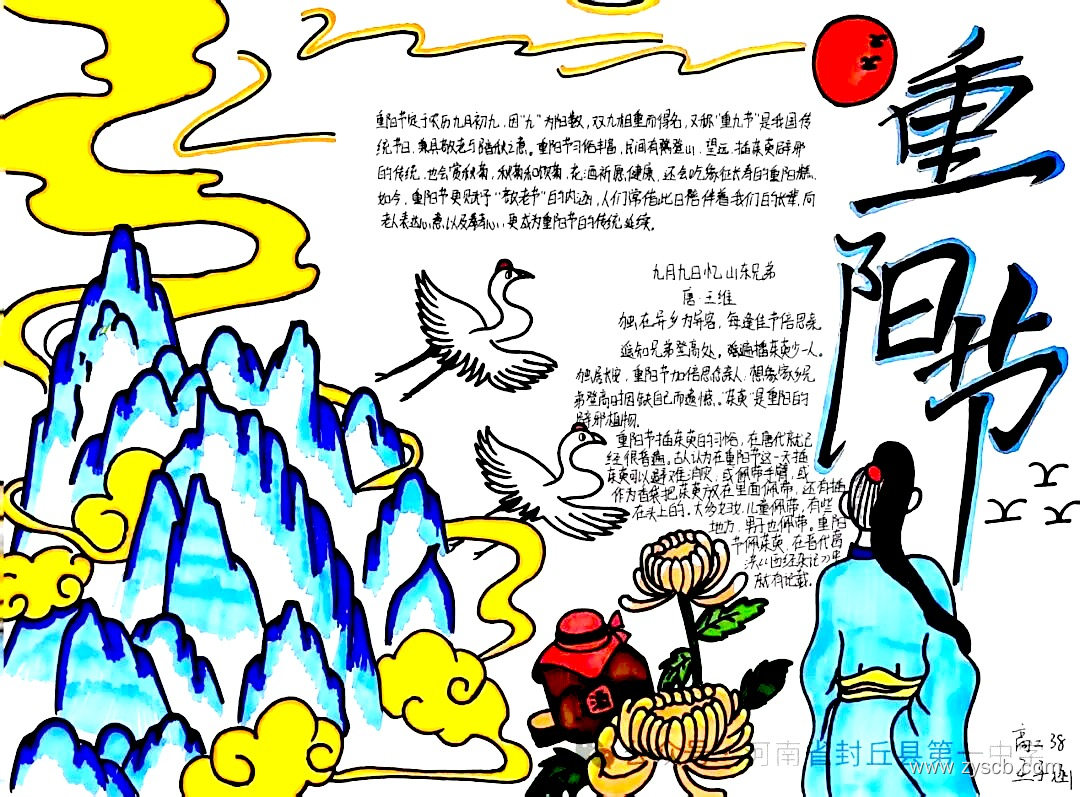 重阳节
重阳节定于农历九月初九，因“九”为阳数，双九相重而得名，又称“重九节”是我国传
统节日，兼具敬老与踏秋之意。重阳节习俗丰富，民间有佩登山、望远、插茱萸辟邪
的传统，也会赏秋菊，花酒祈愿健康，还会吃象征长寿的重阳糕，
如今，重阳节更赋予“敬老节”的内涵，人们常借此日陪伴着我们的长辈，向
老人表达心意以及孝心，更成为重阳节日的传统延续。
九月九日忆山东兄弟
唐·王维
独在异乡为异客，每逢佳节倍思亲。
遥知兄弟登高处，遍插茱萸少一人。
独居长安，重阳节加倍思念亲人，想象家乡兄
弟登高时因缺自己而遗憾。“茱萸”是重阳的
辟邪植物。
重阳节插茱萸的习俗，在唐代就已
经很普遍。古人认为在重阳节这一天插
茱萸可以避难消灾，或佩带手臂，或
作为香袋把茱萸放在里面佩带，还有插
在头上的，大多妇女、儿童佩带，有些
地方，男子也佩带。重阳
节佩茱萸，在晋代葛
洪《西经杂记》里
就有记载。
高二38
公众号 河南省封丘县第一中学
www.zyscb.com